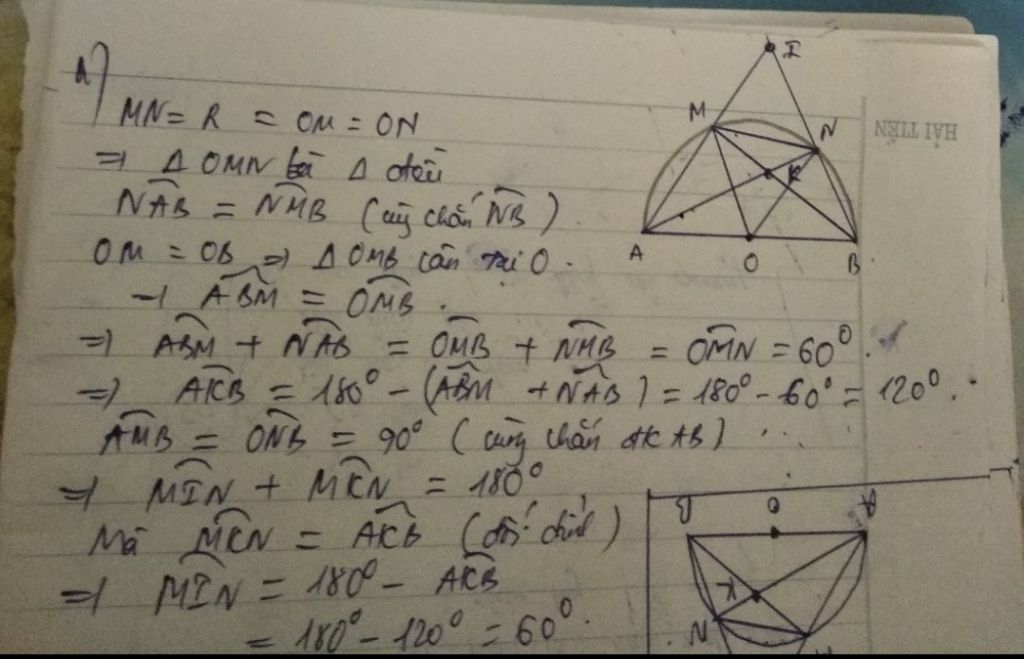 a)
MN = R = OM = ON
⇒ Δ OMN là Δ đều
NAB = NMB (cùng chắn NB).
OM = OB ⇒ Δ OMB cân tại O.
⇒ ABM = OMB.
⇒ ABM + NAB = OMB + NMB = OMN = 60°.
⇒ AKB = 180° - (ABM + NAB) = 180° - 60° = 120°.
AMB = ONB = 90° (cùng chắn đk AB)
⇒ MIN + MKN = 180°
Mà MKN = AKB (đối đỉnh)
⇒ MIN = 180° - AKB
= 180° - 120° = 60°.
I
M
N
K
A
O
B
HẢI TIẾN
B
O
A
K
N